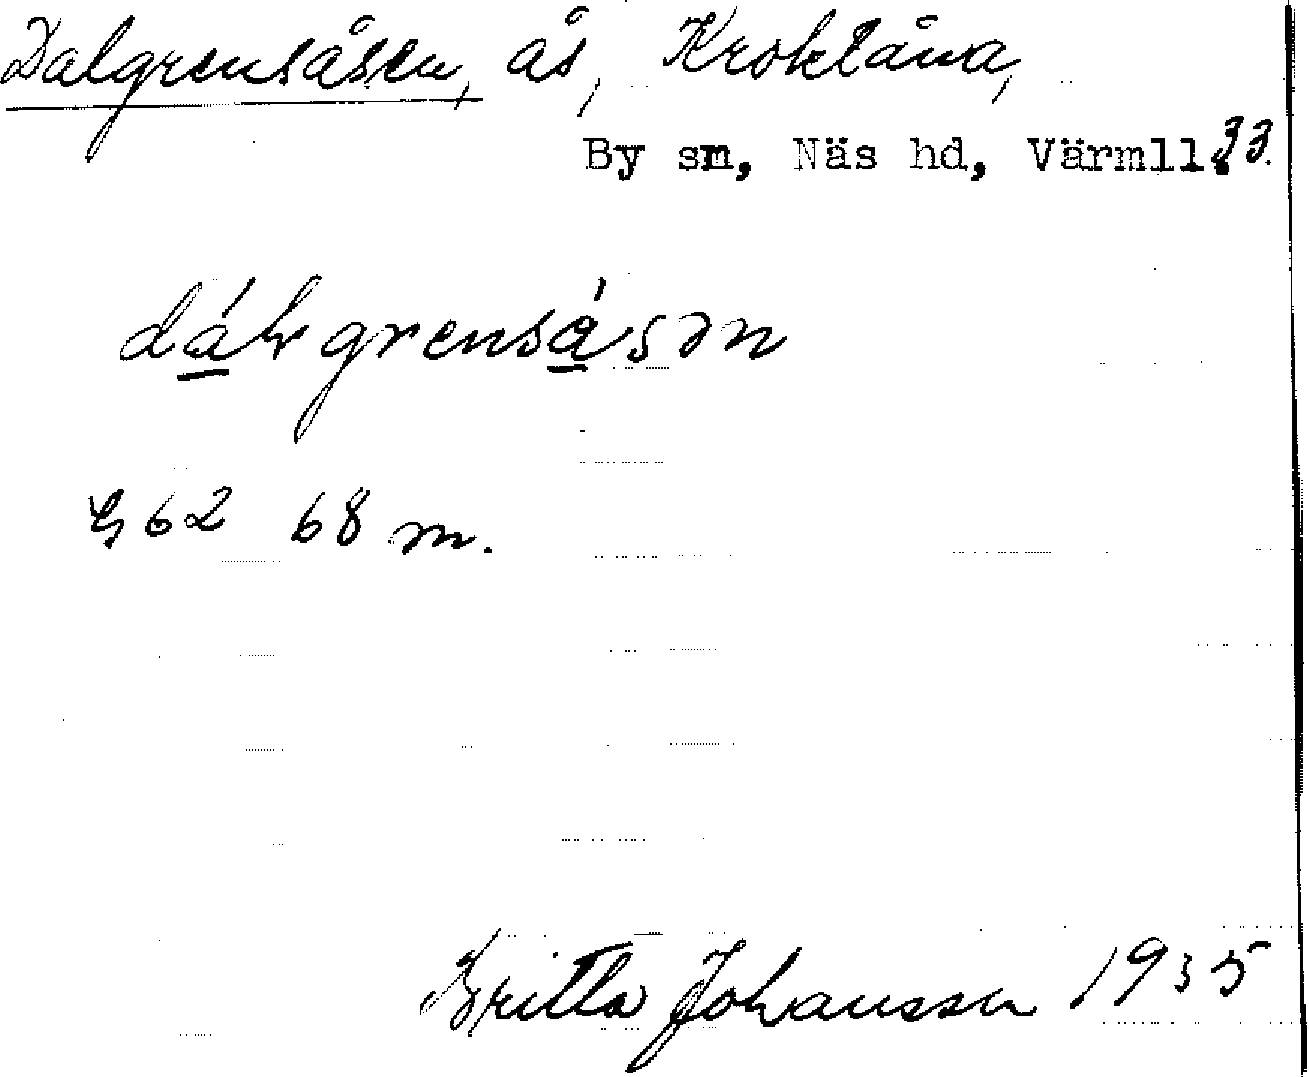 Dalgrensåsen, ås, Kroklåna,
By sm, Näs hd, Värmll. 33.
grensåsən
62 68 m.
Britta Johansson 1935